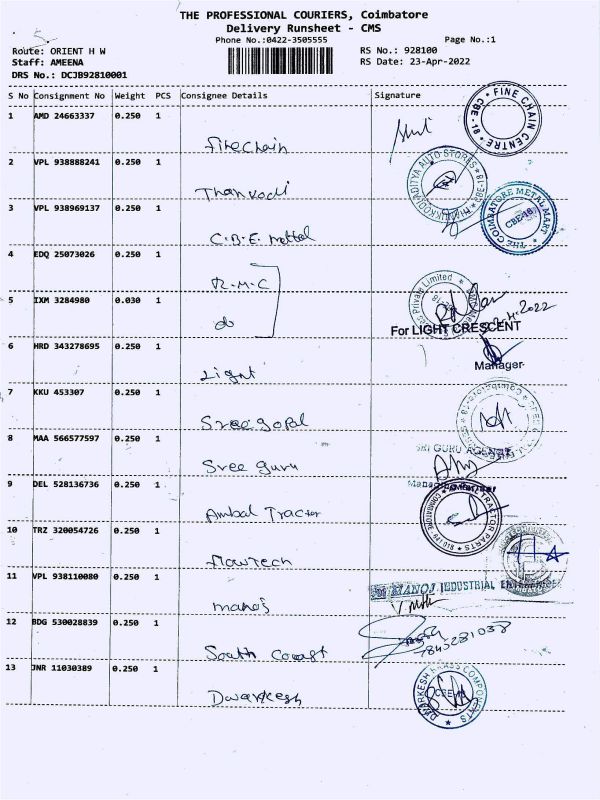 THE PROFESSIONAL COURIERS, Coimbatore
Delivery Runsheet - CMS
Phone No.:0422-3505555 Page No.:1
5.
Route: ORIENT H W RS No.: 928100
Staff: AMEENA RS Date: 23-Apr-2022
DRS No.: DCJB92810001
S No Consignment No Weight PCS Consignee Details Signature
1 AMD 24663337 0.250 1
Firechain
FINE CHAIN CENTRE CBE-18
2 VPL 938888241 0.250 1
Thankodi
AUTO STORES
3 VPL 938969137 0.250 1
C.B.E. mettal
THE COIMBATORE METAL MART CBE-18
4 EDQ 25073026 0.250 1
R.M.C
Private Limited
5 IXM 3284980 0.030 1
do
2022
For LIGHT CRESCENT
6 HRD 343278695 0.250 1
Light
Manager
7 KKU 453307 0.250 1
Sree gopal
8 MAA 566577597 0.250 1
Sree guru
SRI GURU AGENCY
9 DEL 528136736 0.250 1
Ambal Tractor
TRACTOR PARTS
10 TRZ 320054726 0.250 1
flowtech
11 VPL 938110080 0.250 1
manoj
MANOJ INDUSTRIAL ENTERPRISES
12 BDG 530028839 0.250 1
South Coast
7845281038
13 JNR 11030389 0.250 1
Dwarkesh
DWARKESH BRASS COMPONENTS CBE-18